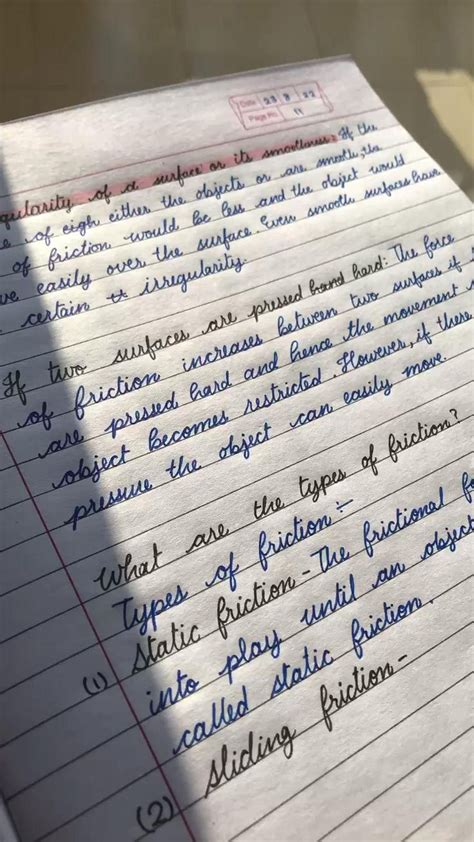 Date 23 8 22
Page No. 11
gularity of a surface or its smoothness: If the
e of eigh either the objects or are smooth, the
of friction would be less and the object would
ve easily over the surface. Even smooth surfaces have
certain irregularity.
If two surfaces are pressed hard: The force
of friction increases between two surfaces if
are pressed hard and hence the movement
object becomes restricted. However, if there
pressure the object can easily move.
What are the types of friction?
Types of friction:-
(1) Static friction - The frictional fo
into play until an object
called static friction.
(2) Sliding friction -